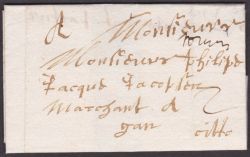 A Monsieur
Monsieur philipe
Jacque
Marchant A
gan citto